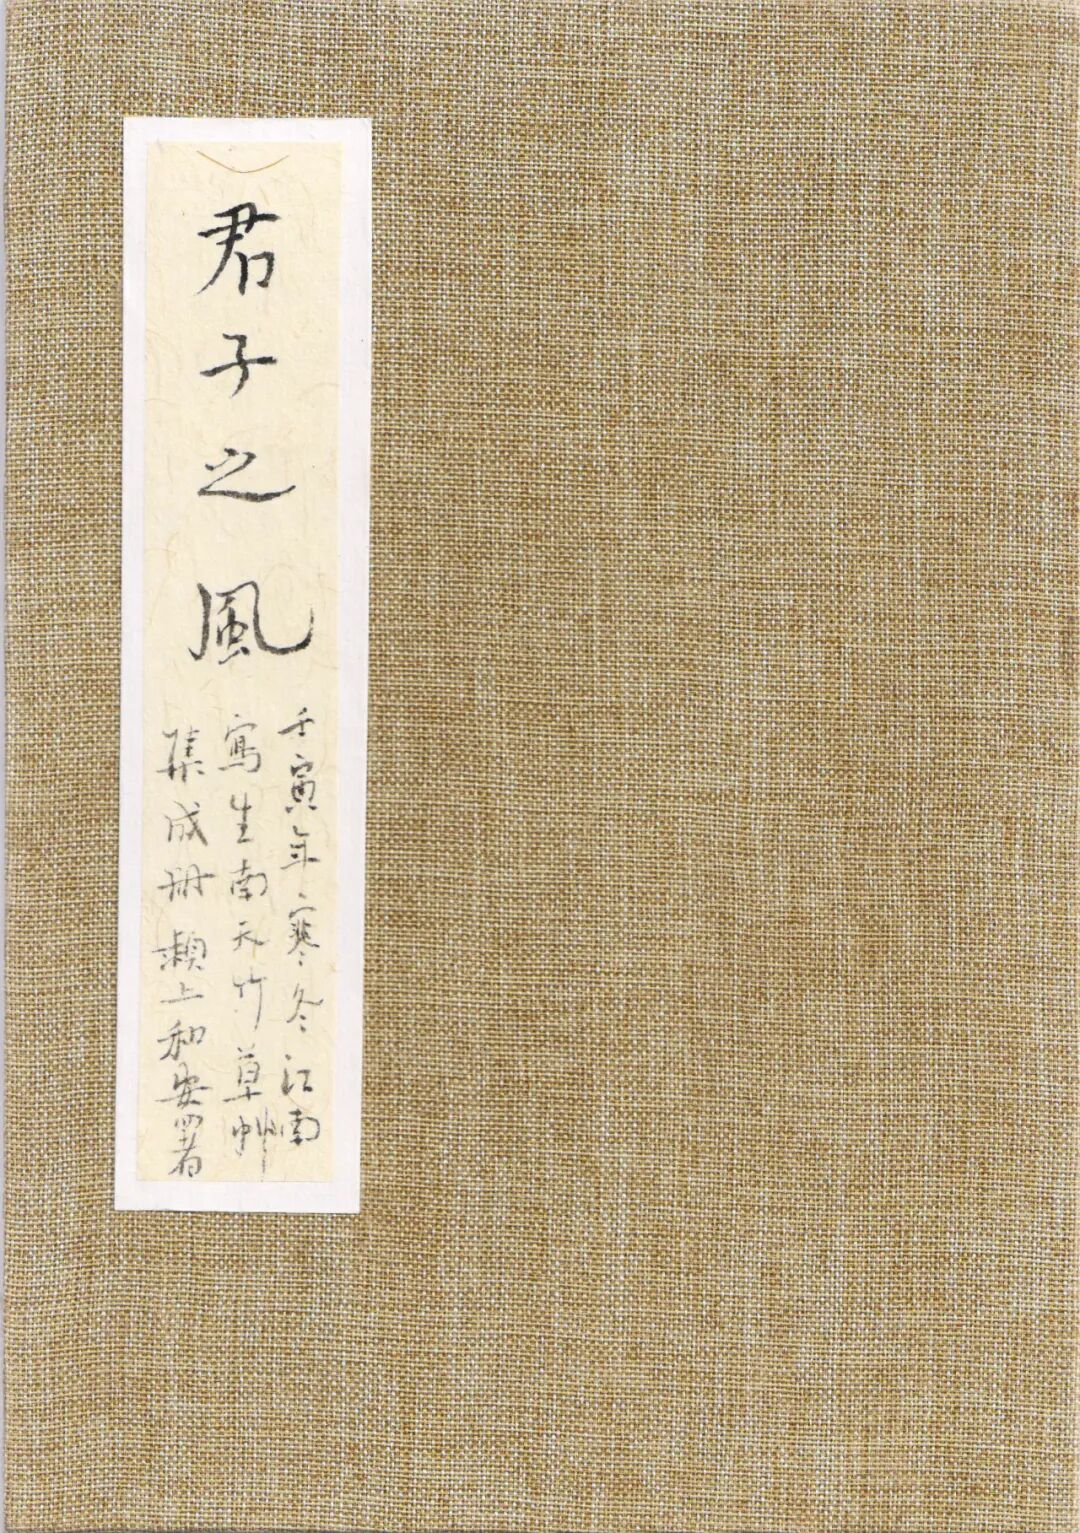 君子之風
壬寅年寒冬江南
寫生南天竹草艸
集成册瀬上和安署